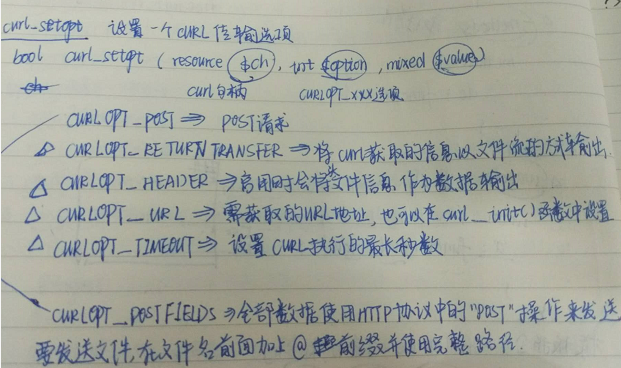 curl_setopt 设置一个CURL传输选项
bool curl_setopt ( resource $ch, int $option, mixed $value)
curl句柄 CURLOPT_XXX选项
CURLOPT_POST => POST请求
△ CURLOPT_RETURNTRANSFER => 将curl获取的信息以文件流的方式输出.
△ CURLOPT_HEADER => 启用时会将头文件信息作为数据输出
△ CURLOPT_URL => 需获取的URL地址,也可以在curl_init()函数中设置
△ CURLOPT_TIMEOUT => 设置CURL执行的最长秒数
CURLOPT_POSTFIELDS => 全部数据使用HTTP协议中的"POST"操作来发送
要发送文件,在文件名前面加上@前缀并使用完整路径.